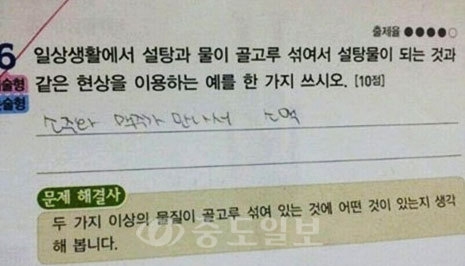 출제율 ●●●●○
6 일상생활에서 설탕과 물이 골고루 섞여서 설탕물이 되는 것과
술형 같은 현상을 이용하는 예를 한 가지 쓰시오. [10점]
술형
소주와 맥주가 만나서 소맥
문제 해결사
두 가지 이상의 물질이 골고루 섞여 있는 것에 어떤 것이 있는지 생각
해 봅니다.
중도일보